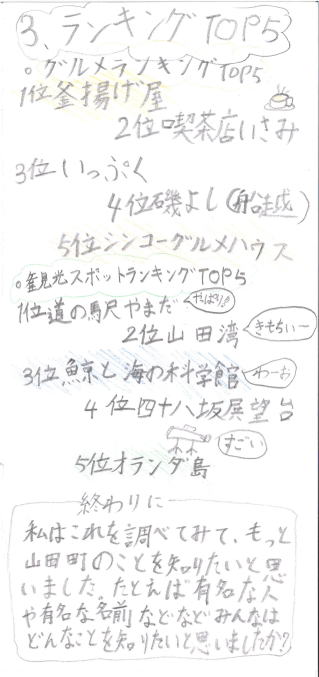 3、ランキングTOP5
○グルメランキングTOP5
1位釜揚げ屋
2位喫茶店いさみ
3位いっぷく
4位磯よし(船越)
5位シンコーグルメハウス
○観光スポットランキングTOP5
1位道の駅やまだ やっぱり!
2位山田湾 きもちぃー
3位鯨と海の科学館 わーお
4位四十八坂展望台
すごい
5位オランダ島
終わりに
私はこれを調べてみて、もっと
山田町のことを知りたいと思
いました。たとえば有名な人
や有名な名前などなどみんなは
どんなことを知りたいと思いましたか?